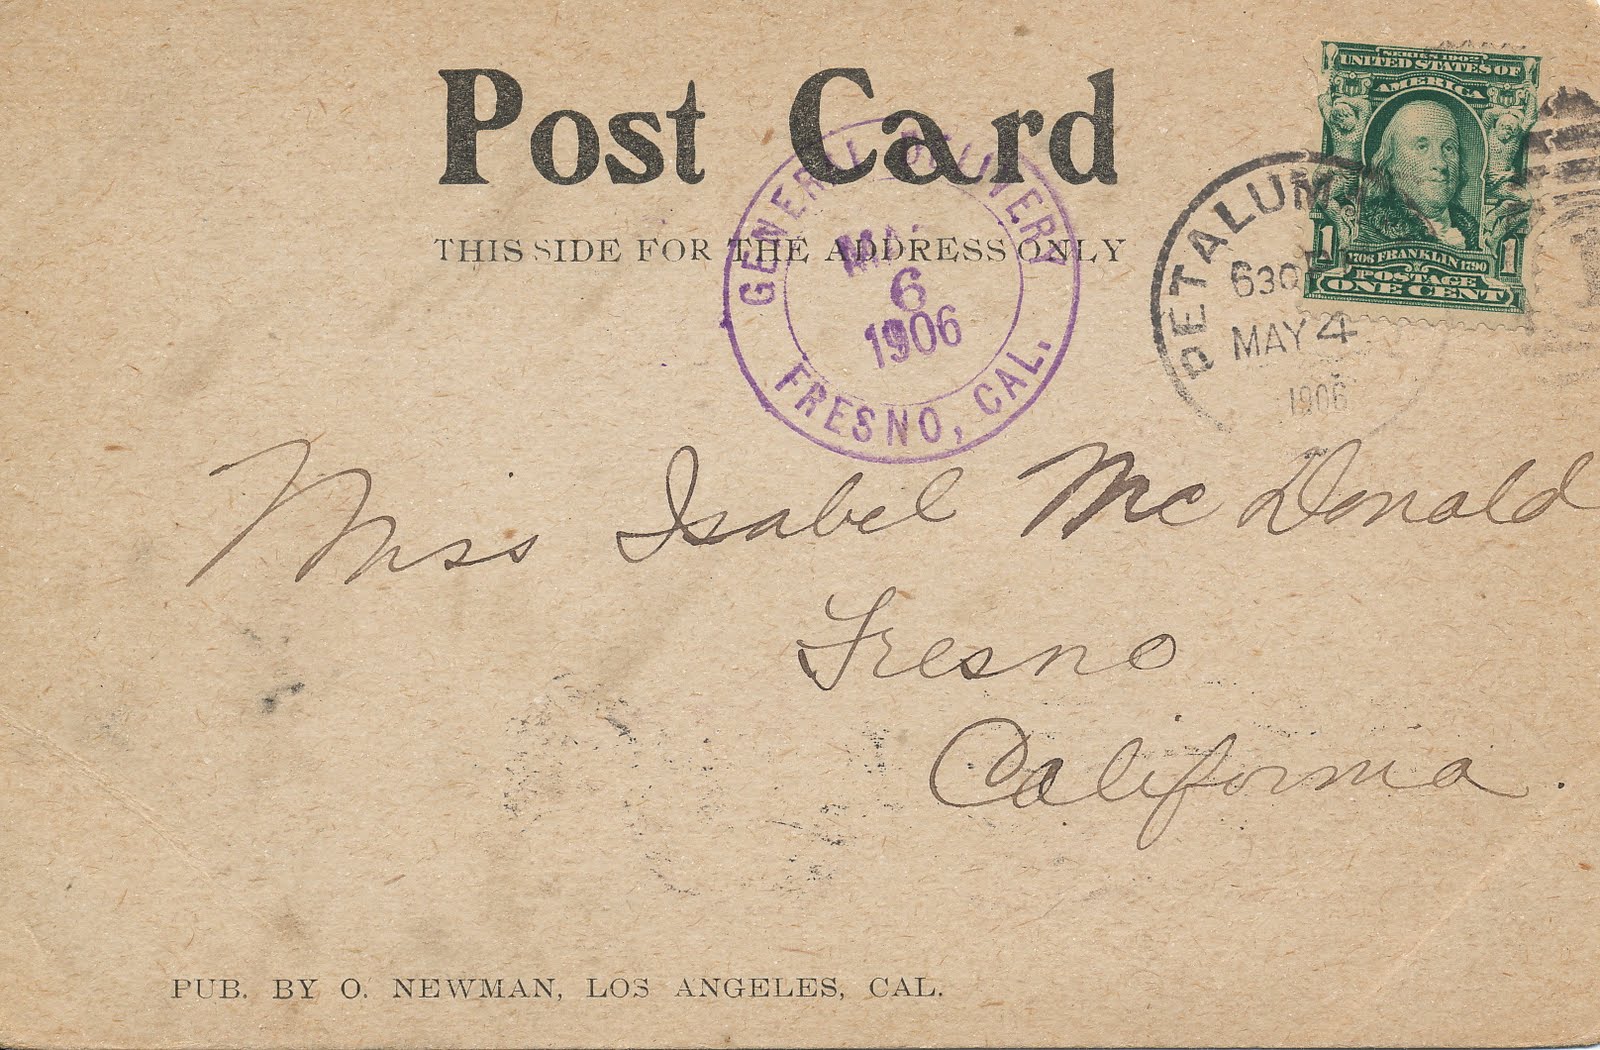 Post Card
THIS SIDE FOR THE ADDRESS ONLY
SERIES 1902
UNITED STATES OF
AMERICA
1706 FRANKLIN 1790
POSTAGE
1 ONE CENT 1
GENERAL DELIVERY
6
1906
FRESNO, CAL.
PETALUMA
630 P
MAY 4
1906
Miss Isabel McDonald
Fresno
California.
PUB. BY O. NEWMAN, LOS ANGELES, CAL.